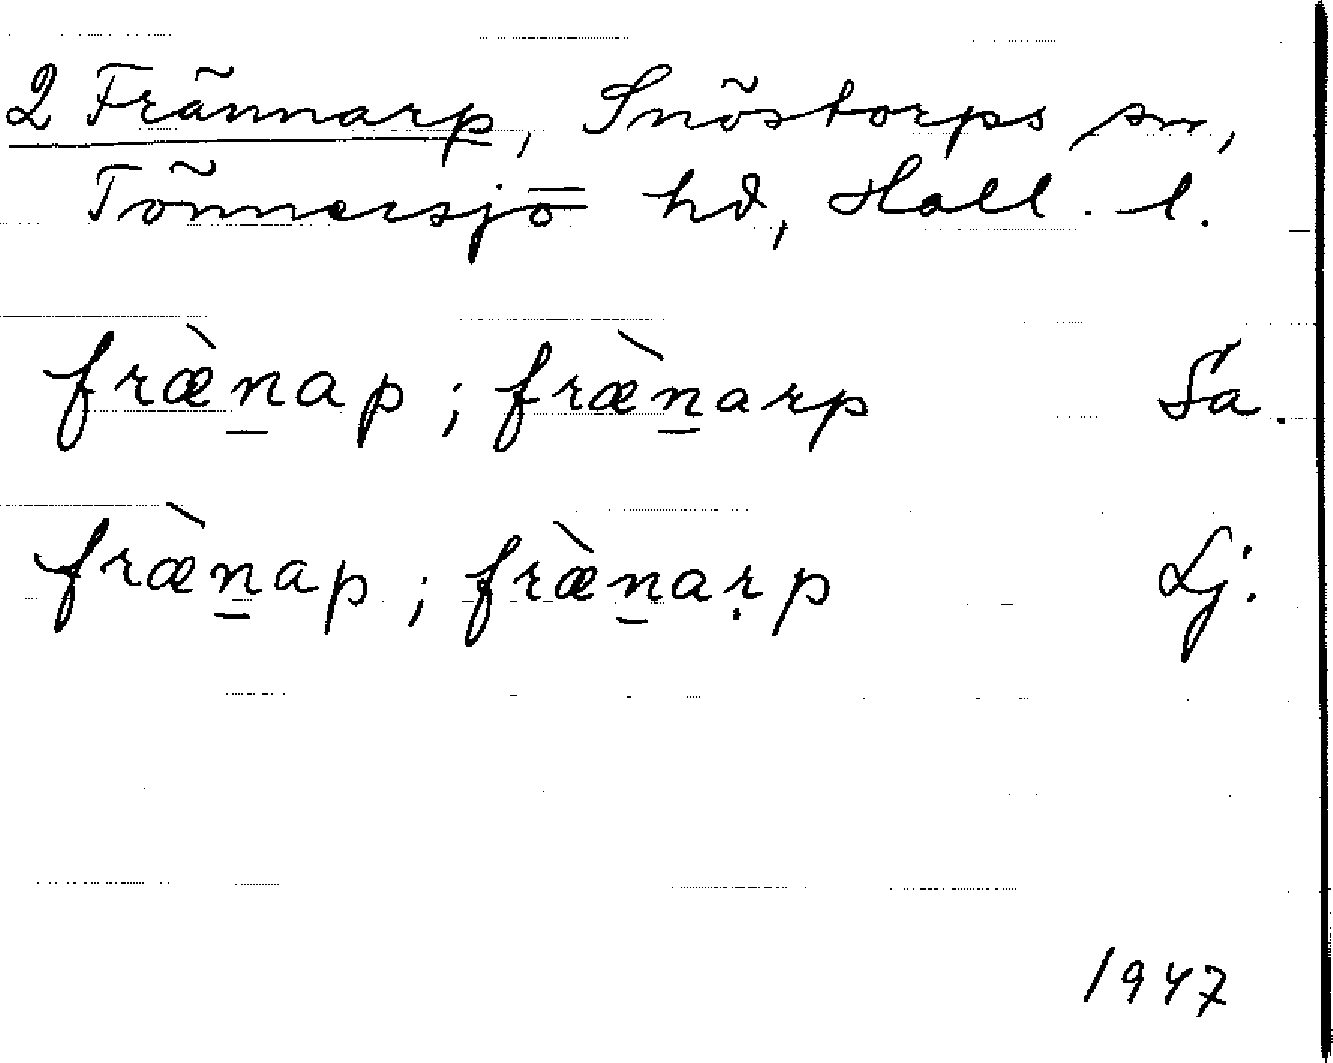 2 Frännarp, Snöstorps sn,
Tönnersjö hd, Hall. l.
fræ̀n̲ap ; fræ̀n̲arp Så.
fræ̀n̲ap ; fræ̀n̲aṛp Lj.
1947